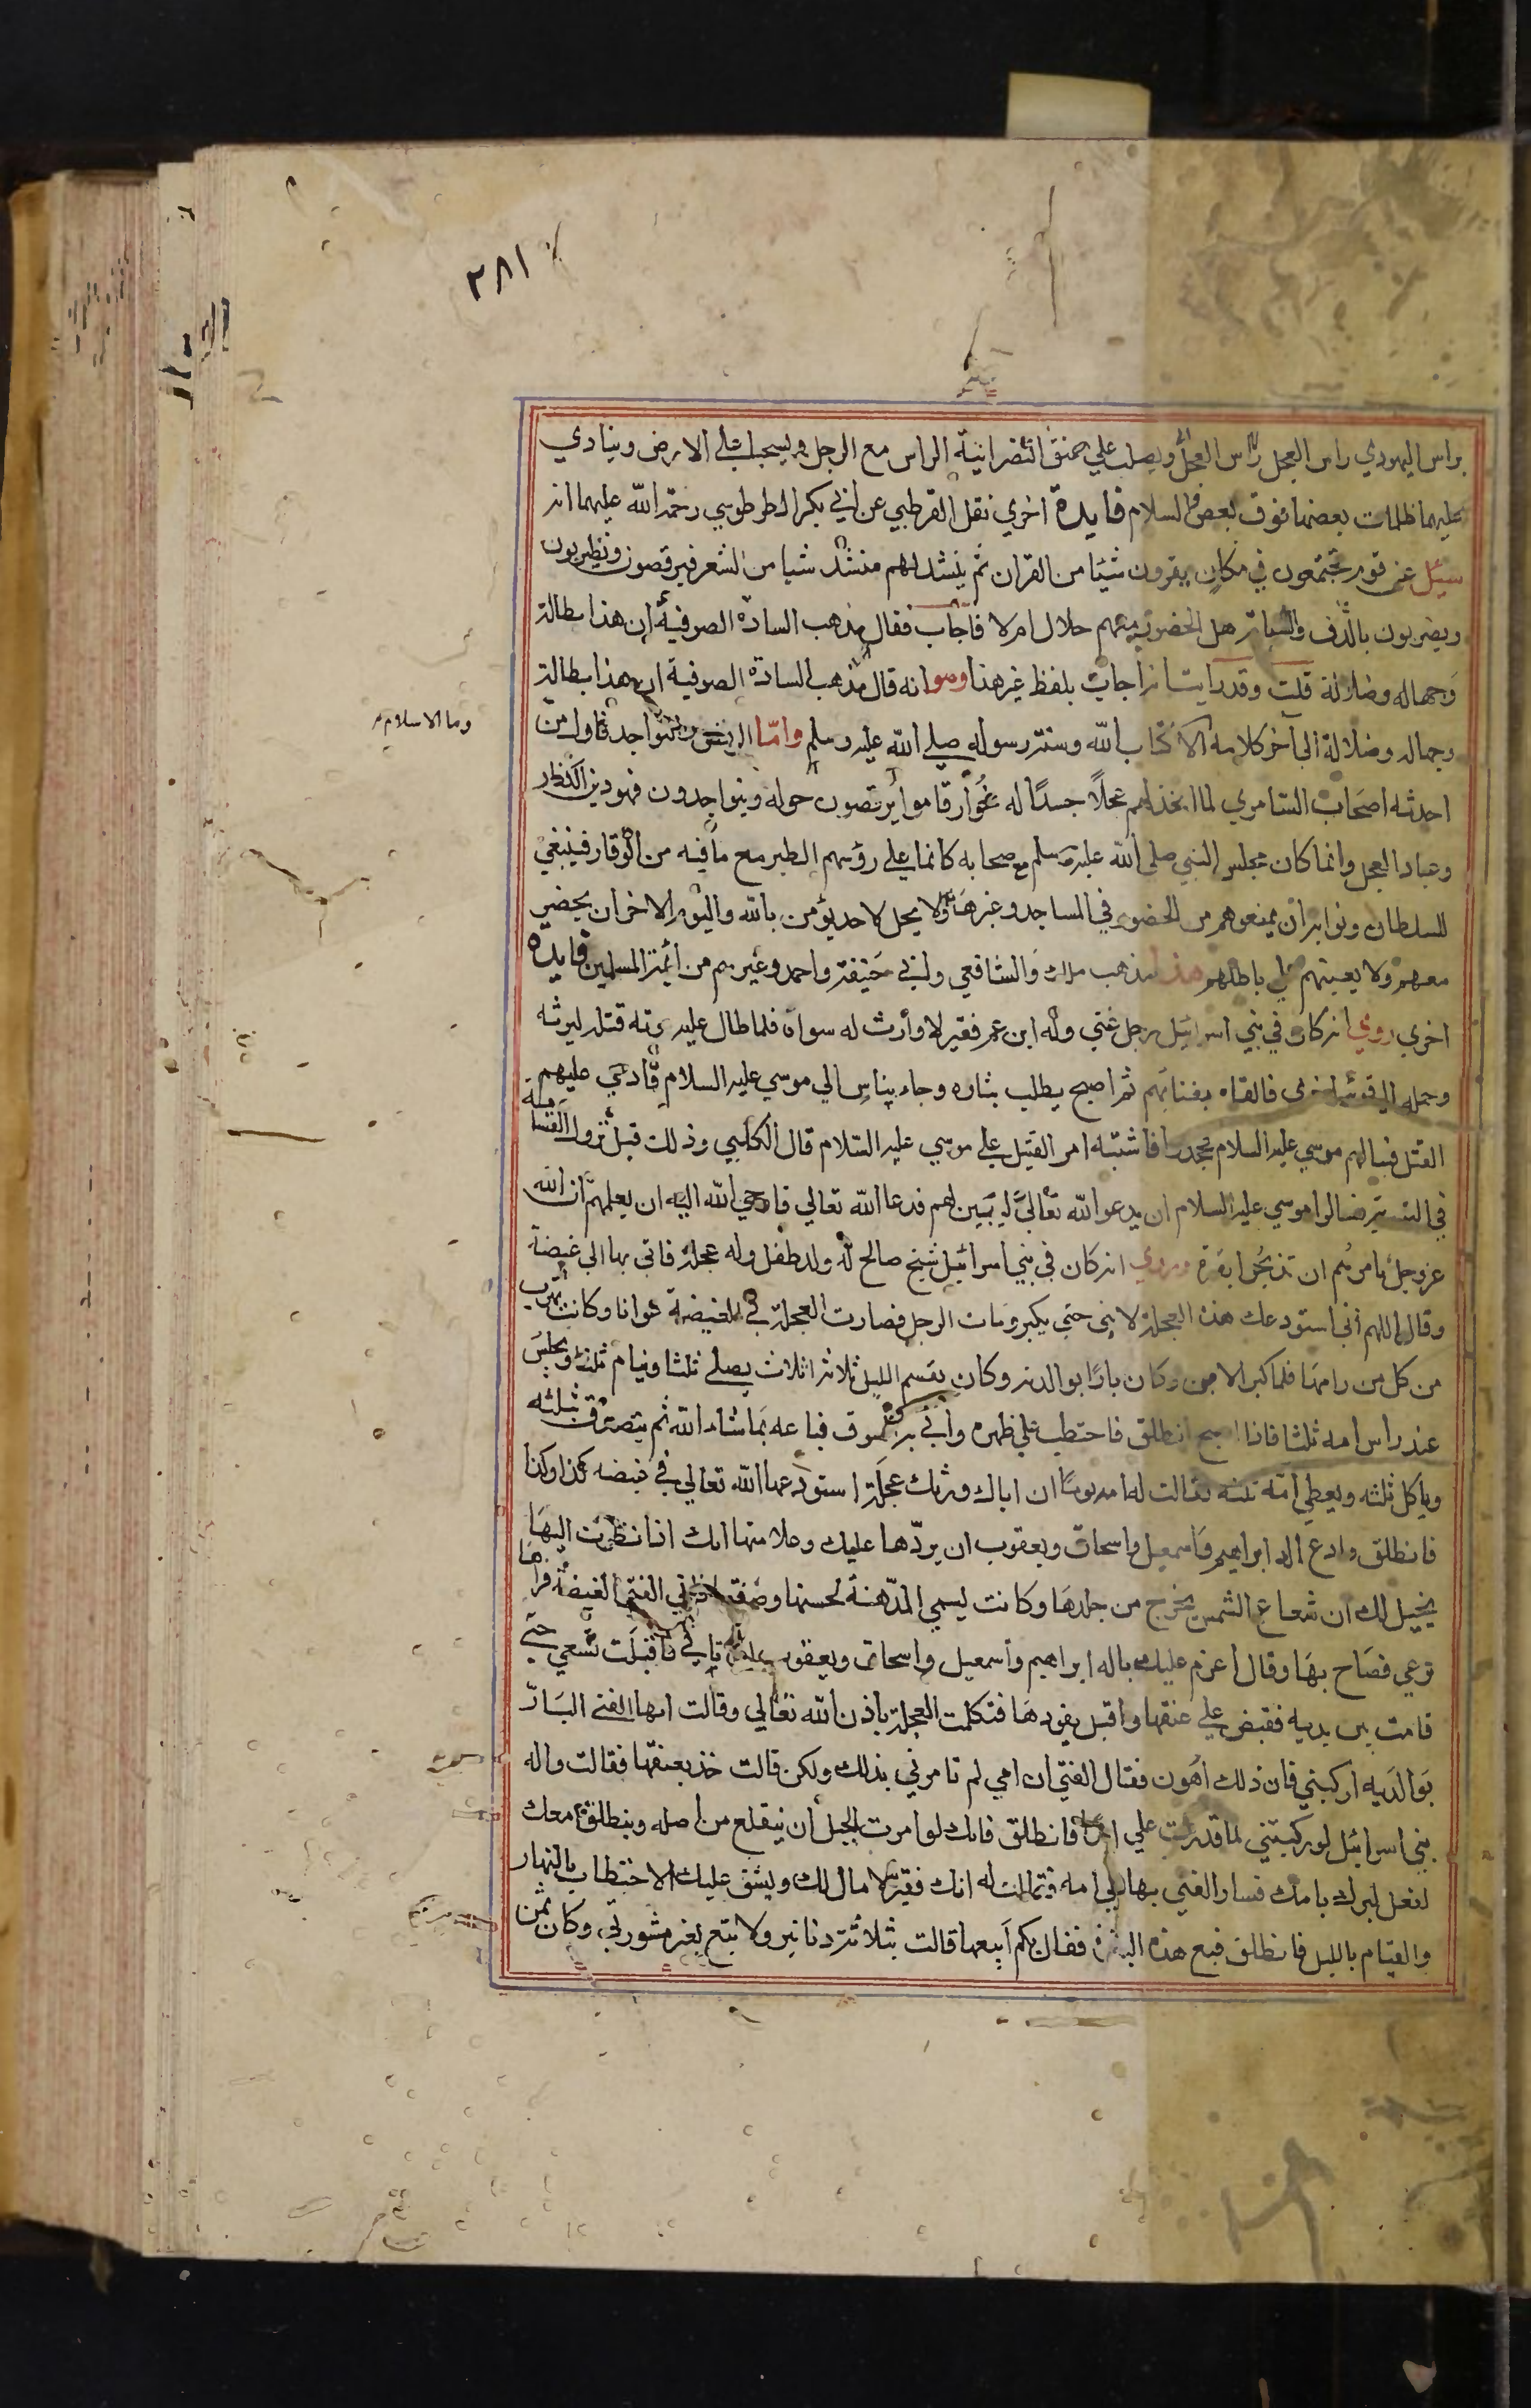 ٢٨١
براس اليهودي راس العجل راس العجل ويصلب على عنق النصرانية الراس مع الرجل ويسحب على الارض وينادي
عليهما ظلمات بعضها فوق بعض والسلام فايدة اخري نقل القرطبي عن ابي بكر الطرطوسي رحمة الله عليهما انه
سيئل عن قوم يجتمعون في مكان يقرون شيئا من القران ثم ينشد لهم منشد شيا من الشعر فيرقصون ويطربون
ويضربون بالدف والشبابة هل الحضور معهم حلال ام لا فاجاب فقال مذهب السادة الصوفية ان هذا بطالة
وجهاله وضلالة قلت وقد رايت انه اجاب بلفظ غير هذا وهو انه قال مذهب السادة الصوفية ان هذا بطالة
وجهاله وضلالة الى آخر كلامه الا كتاب الله وسنة رسوله صلى الله عليه وسلم واما الرقص والتواجد فاول من
وما الاسلام
احدثه اصحاب السامري لما اتخذ لهم عجلا جسدا له خوار قاموا يرقصون حوله ويتواجدون فهو دين الكفار
وعباد العجل وانما كان مجلس النبي صلى الله عليه وسلم مع صحابه كانما على رؤسهم الطير مع ما فيه من الوقار فينبغي
للسلطان ونوابه ان يمنعوهم من الحضور في المساجد وغيرها ولا يحل لاحد يؤمن بالله واليوم الاخر ان يحضر
معهم ولا يعينهم على باطلهم هذا مذهب مالك والشافعي وابي حنيفة واحمد وغيرهم من ائمة المسلمين فايده
اخري روي انه كان في بني اسرائيل رجل غني وله ابن عم فقير لا وارث له سواه فلما طال عليه موته قتله ليرثه
وحمله الى قرية اخرى فالقاه بفنائهم ثم اصبح يطلب بثاره وجاء بناس الي موسي عليه السلام فادعى عليهم
القتل فسالهم موسي عليه السلام فجحدوا فاشتبه امر القتيل على موسي عليه السلام قال الكلبي وذلك قبل نزول القسامة
في التورية فسالوا موسي عليه السلام ان يدعو الله تعالى ليبين لهم فدعا الله تعالي فاوحي الله اليه ان يعلمهم ان الله
عز وجل يامركم ان تذبحوا بقرة وروي انه كان في بني اسرائيل شيخ صالح له ولد طفل وله عجلة فاتي بها الى غيضة
وقال اللهم اني استودعك هذه العجلة لابني حتي يكبر ومات الرجل فصارت العجلة في الغيضة عوانا وكانت تهرب
من كل من رامها فلما كبر الابن وكان بارا بوالدته وكان يقسم الليل ثلاثة اثلاث يصلي ثلثا وينام ثلثا ويجلس
عند راس امه ثلثا فاذا اصبح انطلق فاحتطب على ظهره واتي به السوق فباعه بما شاء الله ثم يتصدق بثلثه
وياكل ثلثه ويعطي امه ثلثه فقالت له امه يوما ان اباك ورثك عجلة استودعها الله تعالي في غيضه كذا وكذا
فانطلق وادع اله ابراهيم واسمعيل واسحاق ويعقوب ان يردها عليك وعلامتها انك اذا نظرت اليها
يخيل لك ان شعاع الشمس يخرج من جلدها وكانت ليسمي المذهبة لحسنها وصفتها فاتي الفتي الغيضة فراها
ترعي فصاح بها وقال اعزم عليك باله ابراهيم واسمعيل واسحاق ويعقوب ان تاتي فاقبلت تسعي حتي
قامت بين يديه فقبض علي عنقها واقبل يقودها فتكلمت العجلة باذن الله تعالي وقالت ايها الفتي البار
بوالديه اركبني فان ذلك اهون فقال الفتي ان امي لم تامرني بذلك ولكن قالت خذ بعنقها فقالت واله
بني اسرائيل لو ركبتني لما قدرت علي ابدا فانطلق فانك لو امرت الجبل ان ينقلع من اصله وينطلق معك
لفعل لبرك بامك فسار الفتي بها الي امه فقالت له انك فقير لا مال لك ويشق عليك الاحتطاب بالنهار
والقيام بالليل فانطلق فبع هذه البقرة فقال بكم ابيعها قالت بثلاثة دنانير ولا تبع بغير مشورتي وكان ثمن